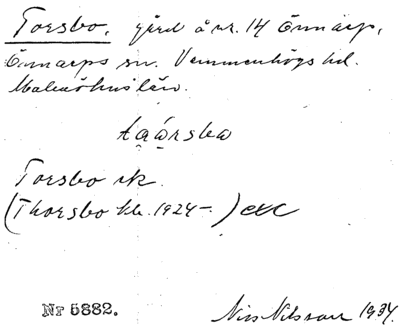 Torsbo, gård å nr. 14 Önnarp,
Önnarps sn. Vemmenhögs hd.
Malmöhus län.
tạạ̊rsba
Torsbo rk.
(Thorsbo kb. 1924-)
Nr 5882. Nils Nilsson 1934.